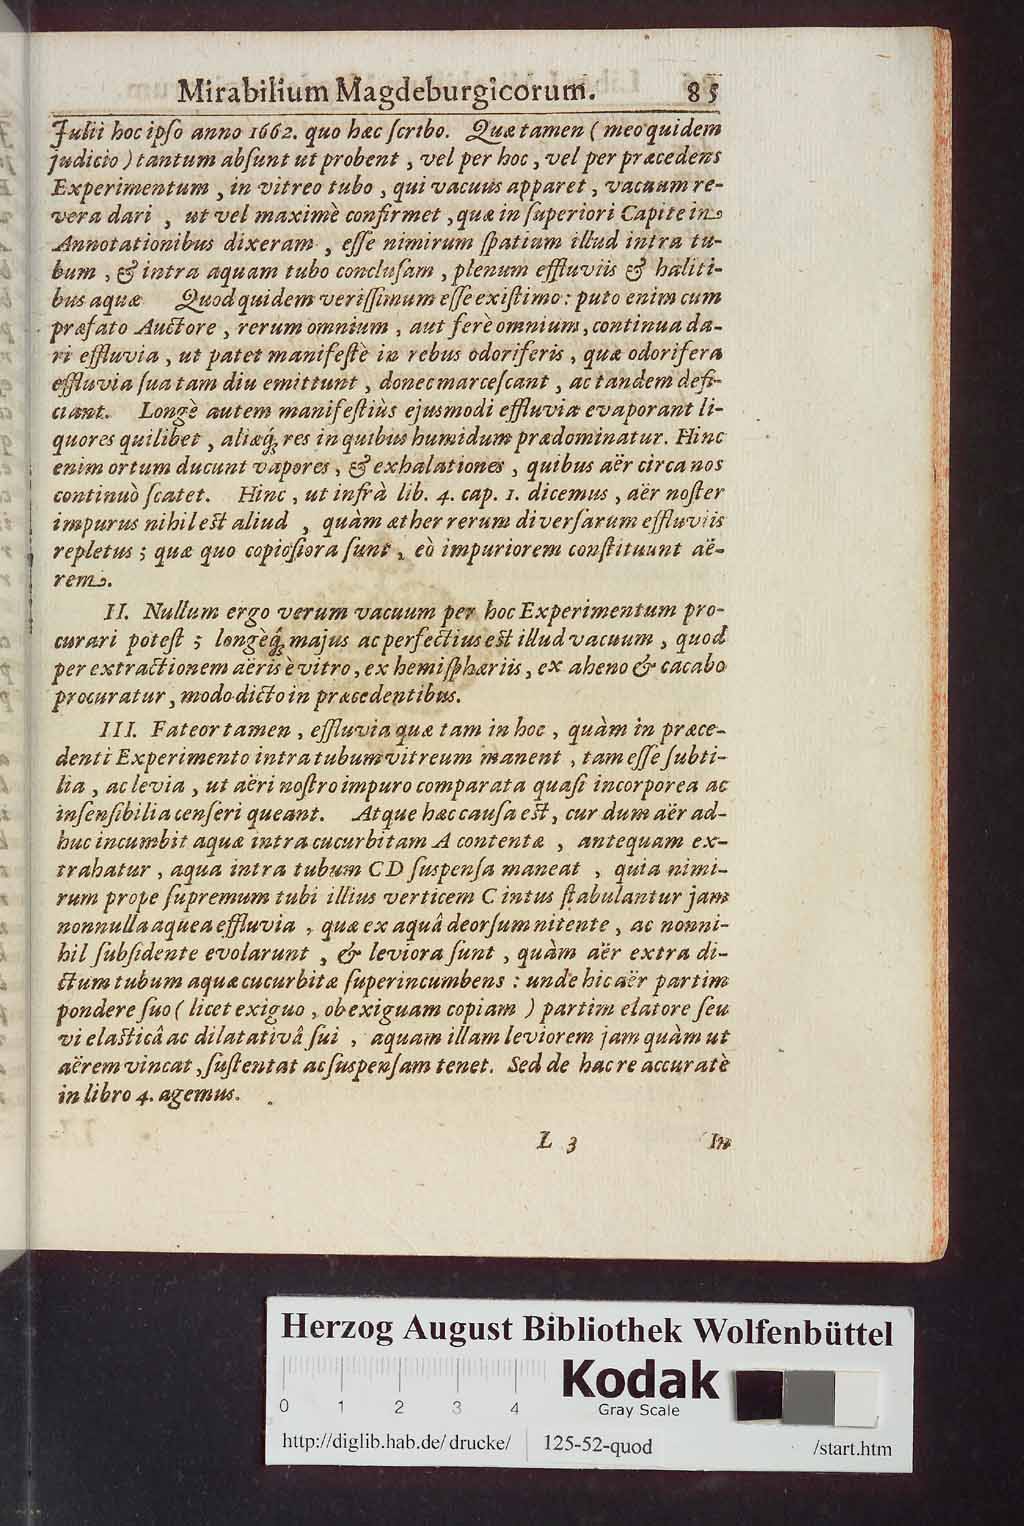 Mirabilium Magdeburgicorum. 85
Julii hoc ipſo anno 1662. quo hæc ſcribo. Quæ tamen ( meo quidem
judicio ) tantum abſunt ut probent , vel per hoc , vel per præcedens
Experimentum , in vitreo tubo , qui vacuus apparet , vacuum re-
vera dari , ut vel maximè confirmet , quæ in ſuperiori Capite in
Annotationibus dixeram , eſſe nimirum ſpatium illud intra tu-
bum , & intra aquam tubo concluſam , plenum effluviis & haliti-
bus aquæ Quod quidem veriſſimum eſſe exiſtimo : puto enim cum
præfato Auctore , rerum omnium , aut ferè omnium, continua da-
ri effluvia , ut patet manifeſtè in rebus odoriferis , quæ odorifera
effluvia ſua tam diu emittunt , donec marceſcant , ac tandem defi-
ciant. Longè autem manifeſtiùs ejusmodi effluvia evaporant li-
quores quilibet , aliæq́; res in quibus humidum prædominatur. Hinc
enim ortum ducunt vapores , & exhalationes , quibus aër circa nos
continuò ſcatet. Hinc , ut infrà lib. 4. cap. 1. dicemus , aër noſter
impurus nihil est aliud , quàm æther rerum diverſarum effluviis
repletus ; quæ quo copioſiora ſunt , eò impuriorem conſtituunt aë-
rem.
II. Nullum ergo verum vacuum per hoc Experimentum pro-
curari poteſt ; longeq́; majus ac perfectius est illud vacuum , quod
per extractionem aëris è vitro, ex hemiſphæriis, ex aheno & cacabo
procuratur , modo dicto in præcedentibus.
III. Fateor tamen , effluvia quæ tam in hoc , quàm in præce-
denti Experimento intra tubum vitreum manent , tam eſſe ſubti-
lia , ac levia , ut aëri noſtro impuro comparata quaſi incorporea ac
inſenſibilia cenſeri queant. Atque hæc cauſa est, cur dum aër ad-
huc incumbit aquæ intra cucurbitam A contentæ , antequam ex-
trahatur , aqua intra tubum CD ſuspenſa maneat , quia nimi-
rum prope ſupremum tubi illius verticem C intus ſtabulantur jam
nonnulla aquea effluvia , quæ ex aquâ deorſum nitente , ac nonni-
hil ſubſidente evolarunt , & leviora ſunt , quàm aër extra di-
ctum tubum aquæ cucurbitæ ſuperincumbens : unde hic aër partim
pondere ſuo ( licet exiguo , ob exiguam copiam ) partim elatore ſeu
vi elasticâ ac dilatativâ ſui , aquam illam leviorem jam quàm ut
aërem vincat , ſuſtentat ac ſuspenſam tenet. Sed de hac re accuratè
in libro 4. agemus.
L 3 In
Herzog August Bibliothek Wolfenbüttel
Kodak
Gray Scale
0 1 2 3 4
http://diglib.hab.de/drucke/ 125-52-quod /start.htm